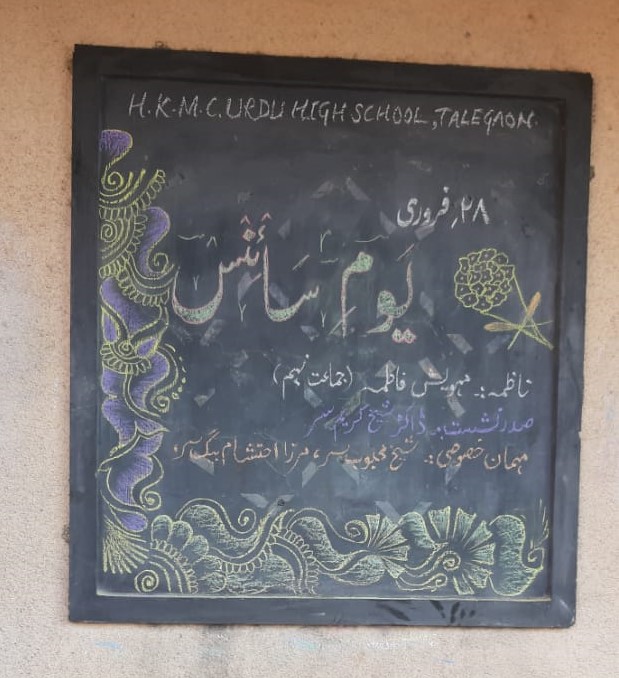 H.K.M.C. URDU HIGH SCHOOL, TALEGAON.
۲۸؍ فروری
یَومِ سَائنس
ناظمہ:۔ مہویش فاطمہ (جماعت نہم)
صدر نشست:۔ ڈاکٹر شیخ کریم سر
مہمان خصوصی:۔ شیخ محبوب سر، مرزا احتشام بیگ سر